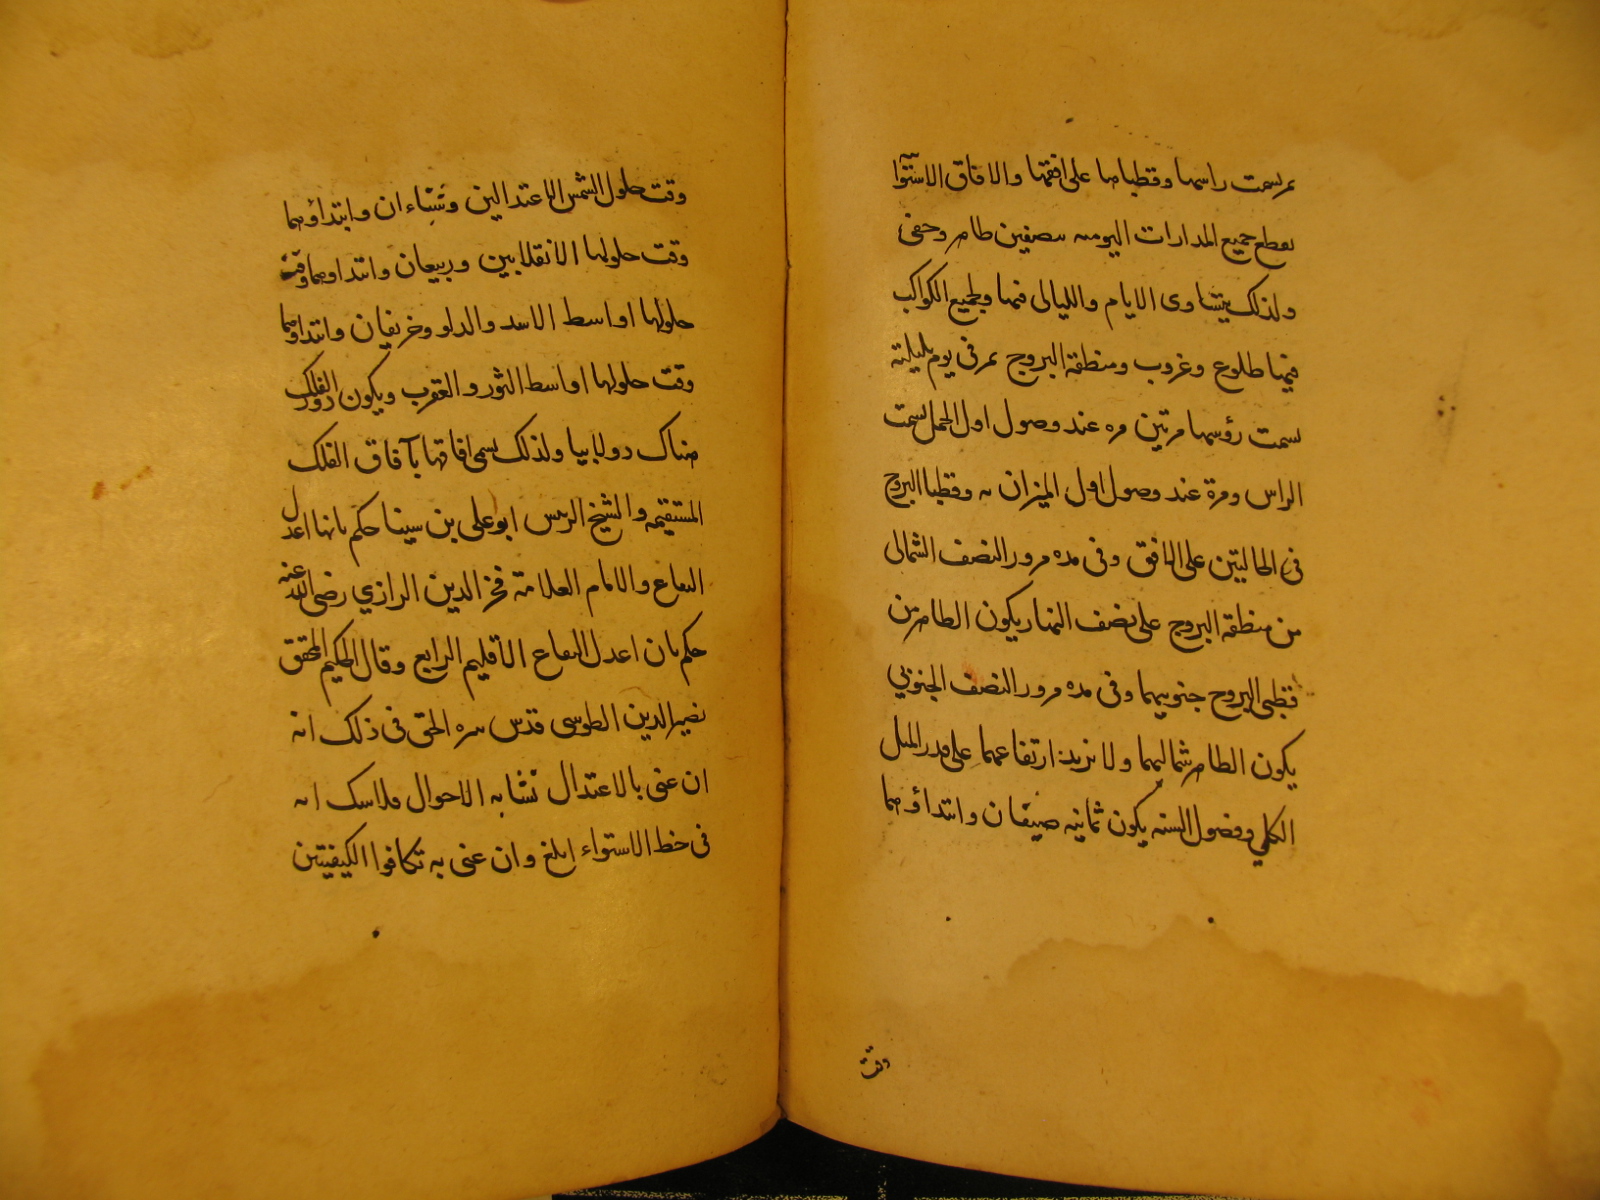 يمر بسمت راسها وقطباها على افقها والافاق الاستوا
يقطع جميع المدارات اليومية بنصفين ظاهر وخفى
ولذلك يتساوى الايام والليالى فيها ولجميع الكواكب
فيها طلوع وغروب ومنطقة البروج تمر فى يوم بليلته
بسمت رؤسها مرتين مرة عند وصول اول الحمل بسمت
الراس ومرة عند وصول اول الميزان به وقطبا البروج
فى الحالتين على الافق وفى مدة مرور النصف الشمالى
من منطقة البروج على نصف النهار يكون الظاهر من
قطبى البروج جنوبيهما وفى مدة مرور النصف الجنوبي
يكون الظاهر شماليهما ولا يزيد ارتفاعهما على قدر الميل
الكلي وفصول السنة يكون ثمانية صيفان وابتداؤهما
وقت
وقت حلول الشمس الاعتدالين وشتاءان وابتداؤهما
وقت حلولها الانقلابين وربيعان وابتداوهما وقت
حلولها اواسط الاسد والدلو وخريفان وابتداوهما
وقت حلولها اواسط الثور والعقرب ويكون دور الفلك
هناك دولابيا ولذلك يسمى افاقها بآفاق الفلك
المستقيمة والشيخ الرئيس ابو على بن سينا حكم بانها اعدل
البقاع والامام العلامة فخر الدين الرازي رضى الله عنه
حكم بان اعدل البقاع الاقليم الرابع وقال الحكيم المحقق
نصير الدين الطوسى قدس سره الحق فى ذلك انه
ان عنى بالاعتدال تشابه الاحوال فلاسك انه
فى خط الاستواء ابلغ وان عنى به تكافوا الكيفيتين